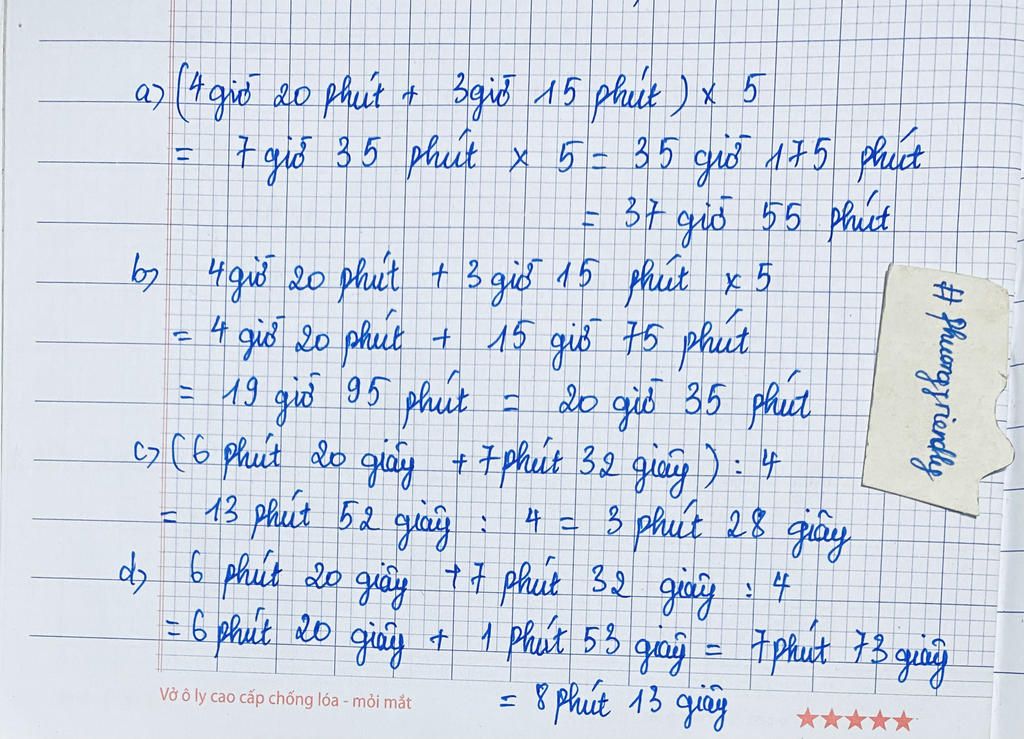 a) (4 giờ 20 phút + 3 giờ 15 phút) x 5
= 7 giờ 35 phút x 5 = 35 giờ 175 phút
= 37 giờ 55 phút
b) 4 giờ 20 phút + 3 giờ 15 phút x 5
= 4 giờ 20 phút + 15 giờ 75 phút
= 19 giờ 95 phút = 20 giờ 35 phút
c) (6 phút 20 giây + 7 phút 32 giây) : 4
= 13 phút 52 giây : 4 = 3 phút 28 giây
d) 6 phút 20 giây + 7 phút 32 giây : 4
= 6 phút 20 giây + 1 phút 53 giây = 7 phút 73 giây
= 8 phút 13 giây
Vở ô ly cao cấp chống lóa - mỏi mắt